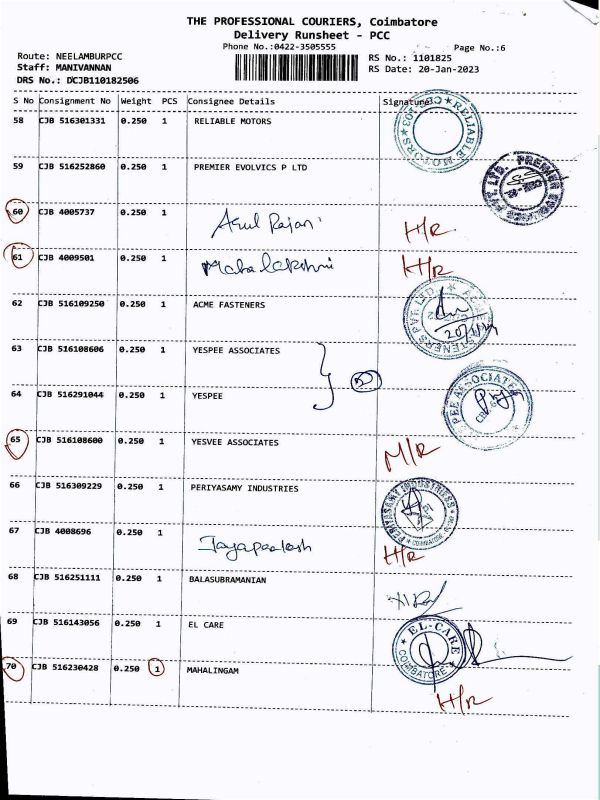 THE PROFESSIONAL COURIERS, Coimbatore
Delivery Runsheet - PCC
Phone No.:0422-3505555
Page No.:6
Route: NEELAMBURPCC
RS No.: 1101825
Staff: MANIVANNAN
RS Date: 20-Jan-2023
DRS No.: DCJB110182506
S No Consignment No Weight PCS Consignee Details Signature
58 CJB 516301331 0.250 1 RELIABLE MOTORS
RELIABLE MOTORS
59 CJB 516252860 0.250 1 PREMIER EVOLVICS P LTD
60 CJB 4005737 0.250 1 Arul Rajan H/R
61 CJB 4009501 0.250 1 Mahalakshmi H/R
62 CJB 516109250 0.250 1 ACME FASTENERS
63 CJB 516108606 0.250 1 YESPEE ASSOCIATES
64 CJB 516291044 0.250 1 YESPEE
65 CJB 516108600 0.250 1 YESVEE ASSOCIATES M/R
66 CJB 516309229 0.250 1 PERIYASAMY INDUSTRIES
PERIYASAMY INDUSTRIES
67 CJB 4008696 0.250 1 H/R
68 CJB 516251111 0.250 1 BALASUBRAMANIAN
69 CJB 516143056 0.250 1 EL CARE
EL-CARE
COIMBATORE
70 CJB 516230428 0.250 1 MAHALINGAM H/R